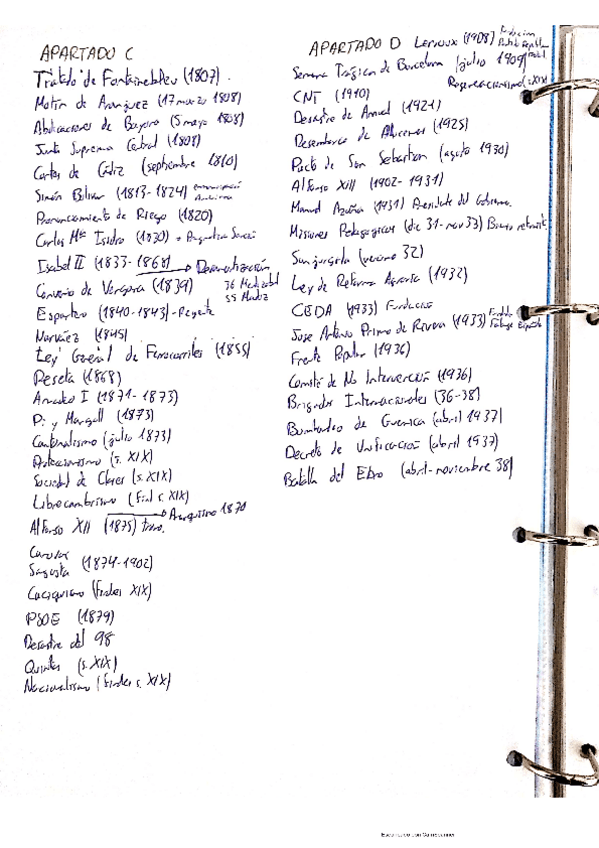 APARTADO C
Tratado de Fontainebleu (1807).
Motín de Aranjuez (17 marzo 1808)
Abdicaciones de Bayona (5 mayo 1808)
Junta Suprema Central (1808)
Cortes de Cádiz (septiembre 1810)
Simón Bolívar (1813-1824) emancipación Americana
Pronunciamiento de Riego (1820)
Carlos Mª Isidro (1830)
Isabel II (1833-1868) → Desamortización
36 Mendizabal
55 Madoz
Convenio de Vergara (1839)
Espartero (1840-1843)-Regente
Narváez (1845)
Ley General de Ferrocarriles (1855)
Peseta (1868)
Amadeo I (1871-1873)
Pi y Margall (1873)
Cantonalismo (julio 1873)
Proteccionismo (s. XIX)
Sociedad de Clases (s. XIX)
Librecambismo (Final s. XIX)
Alfonso XII (1875) → Anarquismo 1870
Canovas
Sagasta (1874-1902)
Caciquismo (finales XIX)
PSOE (1879)
Desastre del 98
Quintas (s. XIX)
Nacionalismo (finales s. XIX)
APARTADO D
Lerroux (1908) Fundación Partido Republicano Radical
Semana Trágica de Barcelona (julio 1909)
Regeneracionismo (s. XIX)
CNT (1910)
Desastre de Annual (1921)
Desembarco de Alhucemas (1925)
Pacto de San Sebastian (agosto 1930)
Alfonso XIII (1902-1931)
Manuel Azaña (1931) Presidente del Gobierno.
Misiones Pedagogicas (dic 31-nov 33) Bienio reformista
Sanjurjada (verano 32)
Ley de Reforma Agraria (1932)
CEDA (1933) Fundación
Jose Antonio Primo de Rivera (1933) Funda Falange Española
Frente Popular (1936)
Comité de No Intervención (1936)
Brigadas Internacionales (36-38)
Bombardeo de Guernica (abril 1937)
Decreto de Unificación (abril 1937)
Batalla del Ebro (abril-noviembre 38)
Escaneado con CamScanner